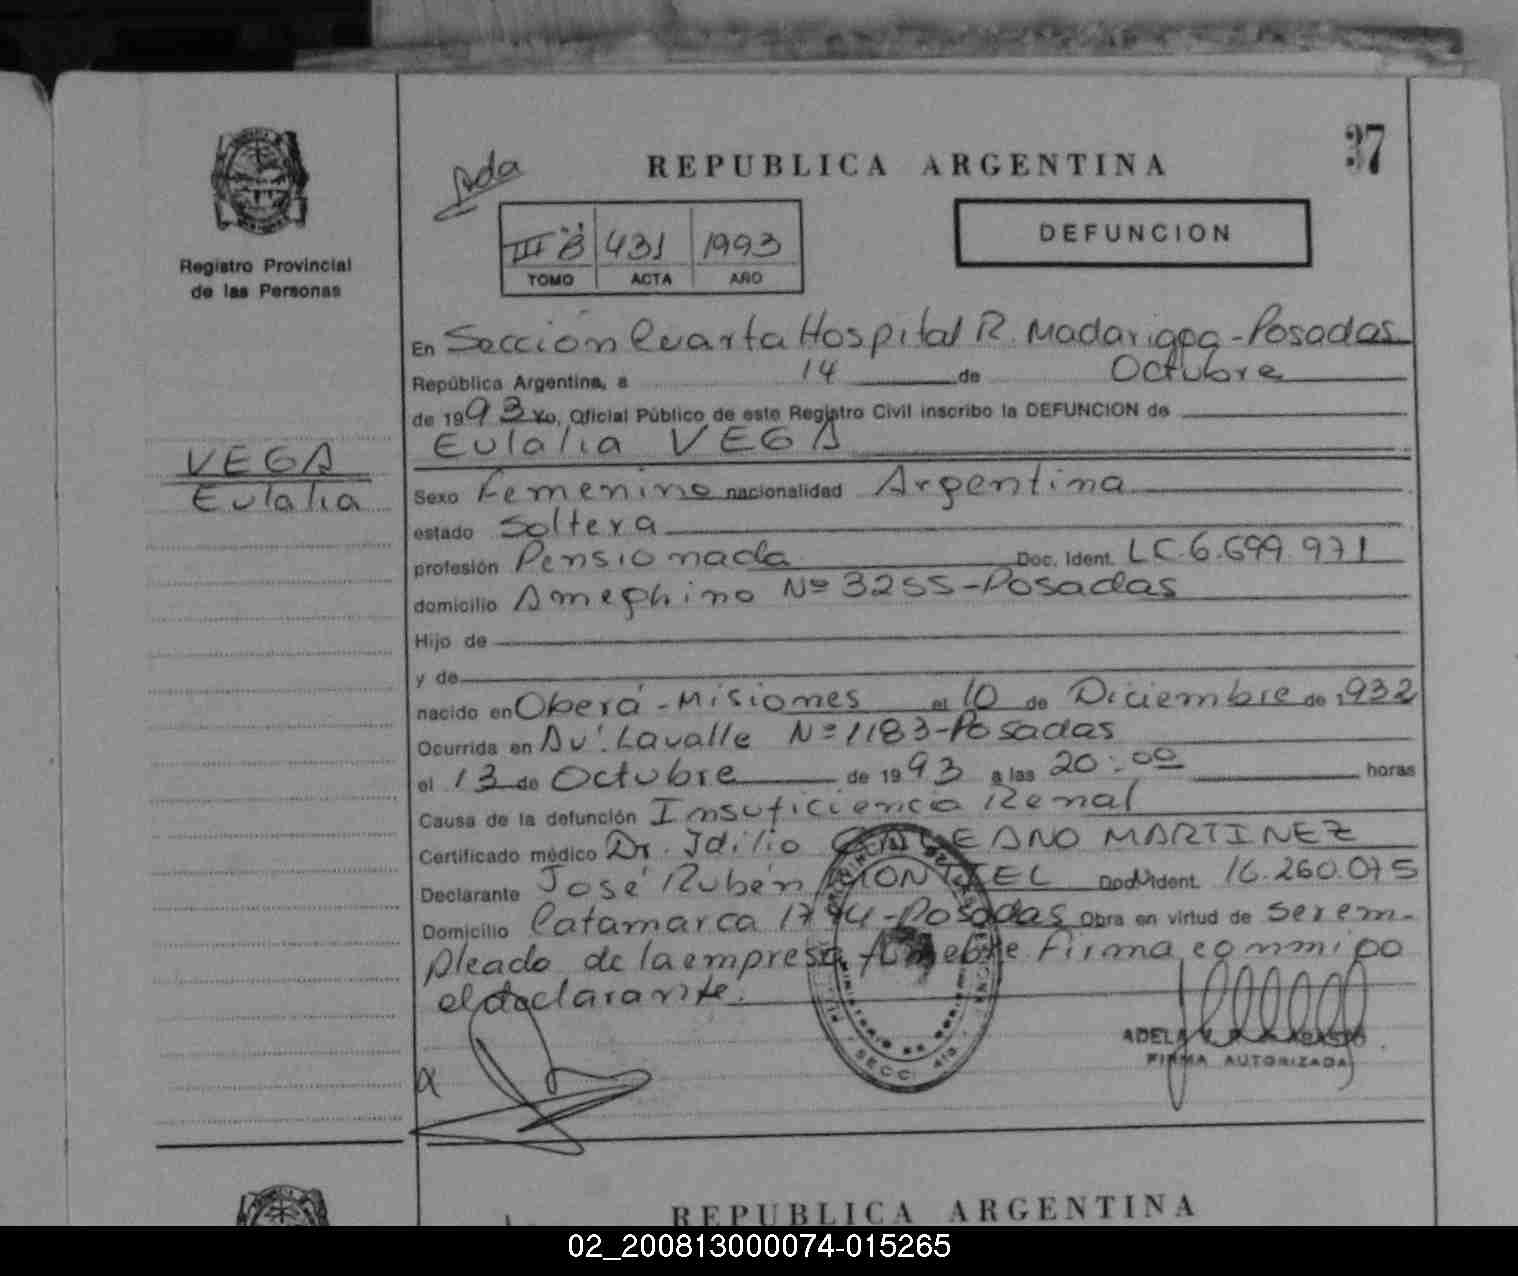 37
Ada
REPUBLICA ARGENTINA
III "B" 431 1993
TOMO ACTA AÑO
DEFUNCION
Registro Provincial
de las Personas
En Sección Cuarta Hospital R. Madariaga - Posadas
República Argentina, a 14 de Octubre
de 1993 Yo, Oficial Público de este Registro Civil inscribo la DEFUNCION de
Eulalia VEGA
VEGA
Eulalia
Sexo Femenino nacionalidad Argentina
estado Soltera
profesión Pensionada Doc. Ident. LC 6.699.971
domicilio Ameghino Nº 3255-Posadas
Hijo de
y de
nacido en Oberá - Misiones el 10 de Diciembre de 1932
Ocurrida en Av. Lavalle Nº 1183-Posadas
el 13 de Octubre de 1993 a las 20:00 horas
Causa de la defunción Insuficiencia Renal
Certificado médico Dr. Idilio GALEANO MARTINEZ
Declarante José Rubén MONTIEL Doc. Ident. 16.260.075
Domicilio Catamarca 1794-Posadas Obra en virtud de ser em-
pleado de la empresa fúnebre. Firma conmigo
el declarante.
ADELA
FIRMA AUTORIZADA
SECC. 4ta
REPUBLICA ARGENTINA
02_200813000074-015265